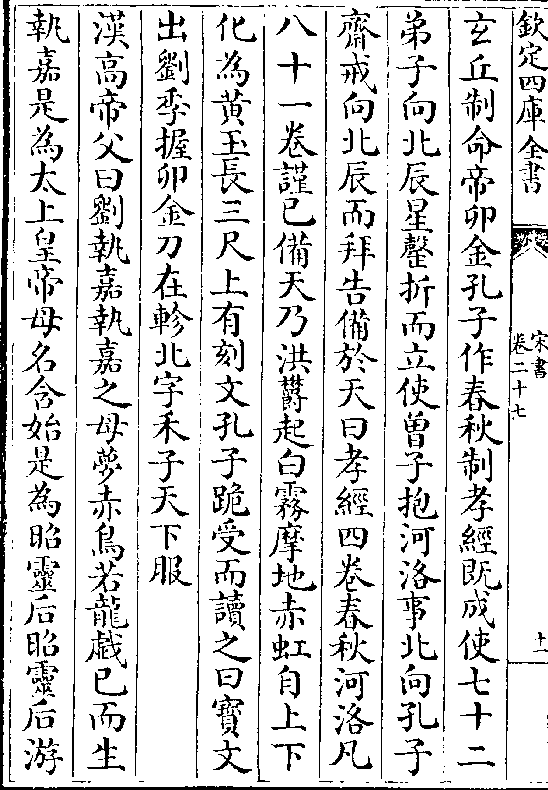 欽定四庫全書
宋書
卷二十七
十一
玄丘制命帝卯金孔子作春秋制孝經既成使七十二
弟子向北辰星罄折而立使曾子抱河洛事北向孔子
齋戒向北辰而拜告備於天曰孝經四卷春秋河洛凡
八十一卷謹已備天乃洪鬱起白霧摩地赤虹自上下
化為黃玉長三尺上有刻文孔子跪受而讀之曰寳文
出劉季握卯金刀在軫北字禾子天下服
漢高帝父曰劉執嘉執嘉之母夢赤鳥若龍戲已而生
執嘉是為太上皇帝母名含始是為昭靈后昭靈后游